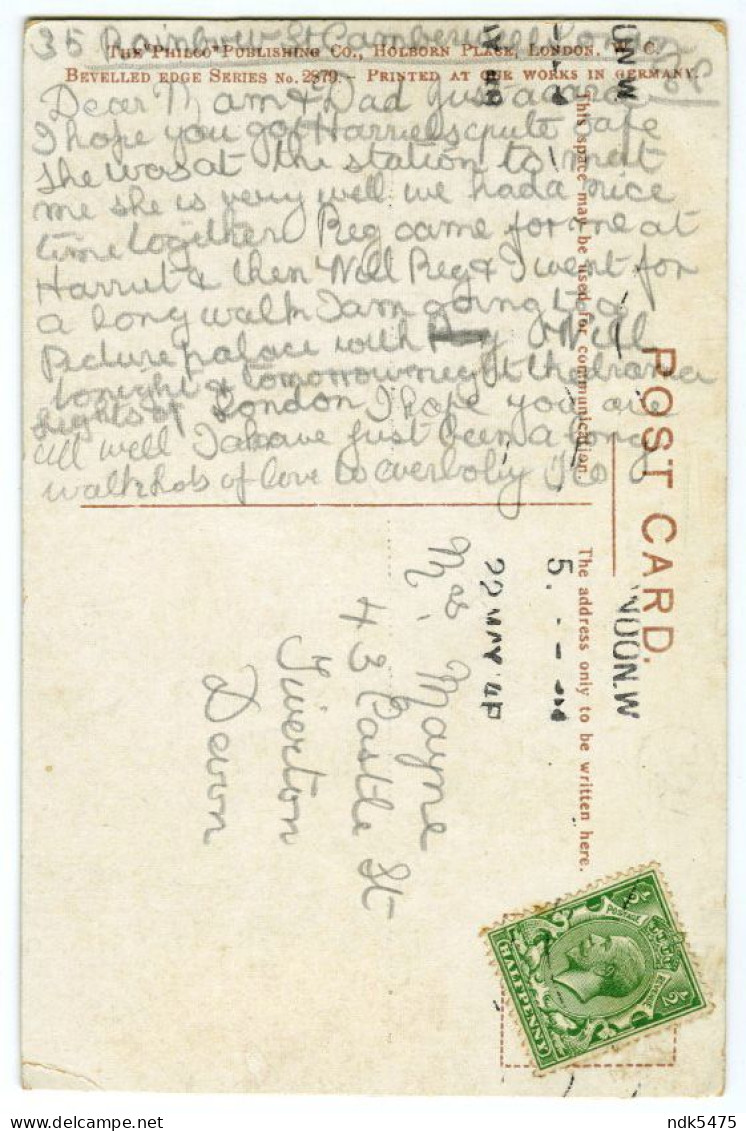 35 Rainbow St Camberwell London
THE "PHILCO" PUBLISHING CO., HOLBORN PLACE, LONDON. W. C.
BEVELLED EDGE SERIES No. 2879. - PRINTED AT OUR WORKS IN GERMANY.
Dear Mam & Dad just a card
I hope you got Harriets safe
she was at the station to meet
me she is very well we had a nice
time together Reg came for me at
Harriet & then Will Reg & I went for
a long walk I am going to a
Picture palace with Reg & Will
tonight & tomorrow night the drama
lights of London I hope you are
all well I have just been a long
walk lots of love to everboby
This space may be used for communication.
POST CARD.
The address only to be written here.
NDON.W
5.
22 MAY 14
Mrs Mayne
43 Castle St
Tiverton
Devon
POSTAGE
REVENUE
HALFPENNY
½
½
ndk5475